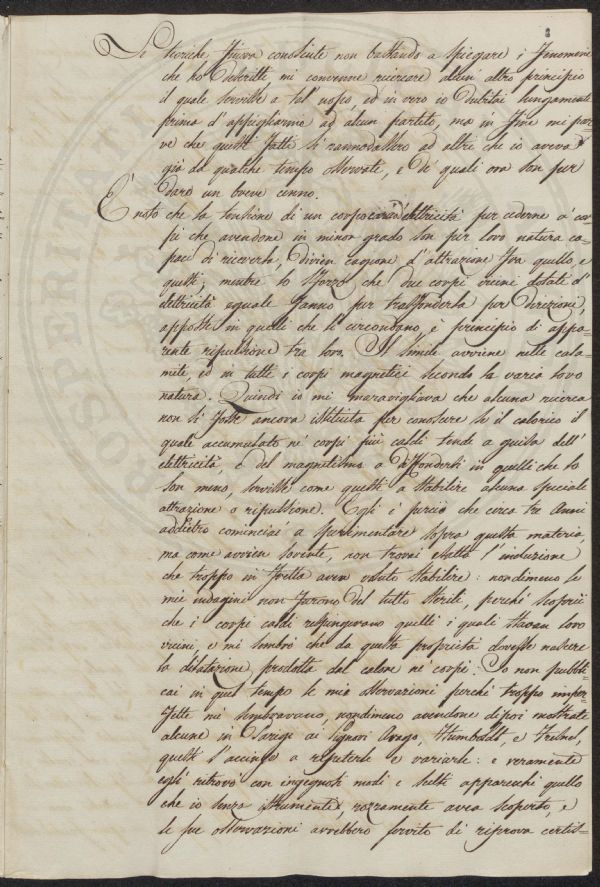 8
Le teoriche finora conosciute non bastando a spiegare i fenomeni
che ho descritte, mi convenne ricercare alcun altro principio
il quale servisse a tal uopo, ed in vero io dubitai lungamente
prima d'appigliarmi ad alcun partito, ma in fine mi par=
ve che questi fatti si rannodassero ad altri che io aveva
già da qualche tempo osservati, e di quali ora son per
dare un breve cenno.
È noto che la tensione di un corpo carico d'elettricità per cederne a' cor=
pi che avendone in minor grado son per loro natura ca=
paci di riceverla, divien cagione d'attrazione fra quello e
questi, mentre lo sforzo che due corpi vicini dotati d'
elettricità eguale fanno per trasfonderla per direzioni,
opposte in quelli che li circondano, è principio di appa=
rente ripulsione tra loro. Il simile avviene nelle cala=
mite, ed in tutti i corpi magnetici secondo la varia loro
natura. Quindi io mi maravigliava che alcuna ricerca
non si fosse ancora istituita per conoscere se il calorico il
quale accumulato ne' corpi più caldi tende a guisa dell'
elettricità, e del magnetismo a diffondersi in quelli che lo
son meno, servisse come questi a stabilire alcuna speciale
attrazione o ripulsione. Egli è perciò che circa tre Anni
addietro cominciai a sperimentare sopra questa materia,
ma come avvien sovente, non trovai esatta l'induzione
che troppo in fretta avea voluto stabilire: nondimeno le
mie indagini non furono del tutto sterili, perché scoprii
che i corpi caldi respingevano quelli i quali stavan loro
vicini, e mi sembrò che da questa proprietà dovesse nascere
la dilatazione prodotta dal calore ne' corpi. Io non pubbli=
cai in quel tempo le mie osservazioni perché troppo imper=
fette mi sembravano, nondimeno avendone dipoi mostrate
alcune in Parigi ai signori Arago, Humboldt, e Fresnel,
questi s'accinse a ripeterle e variarle: e veramente
egli ritrovò con ingegnosi modi e scelti apparecchi quello
che io senza istrumenti, rozzamente avea scoperto, e
le sue osservazioni avrebbero servito di riprova certis=